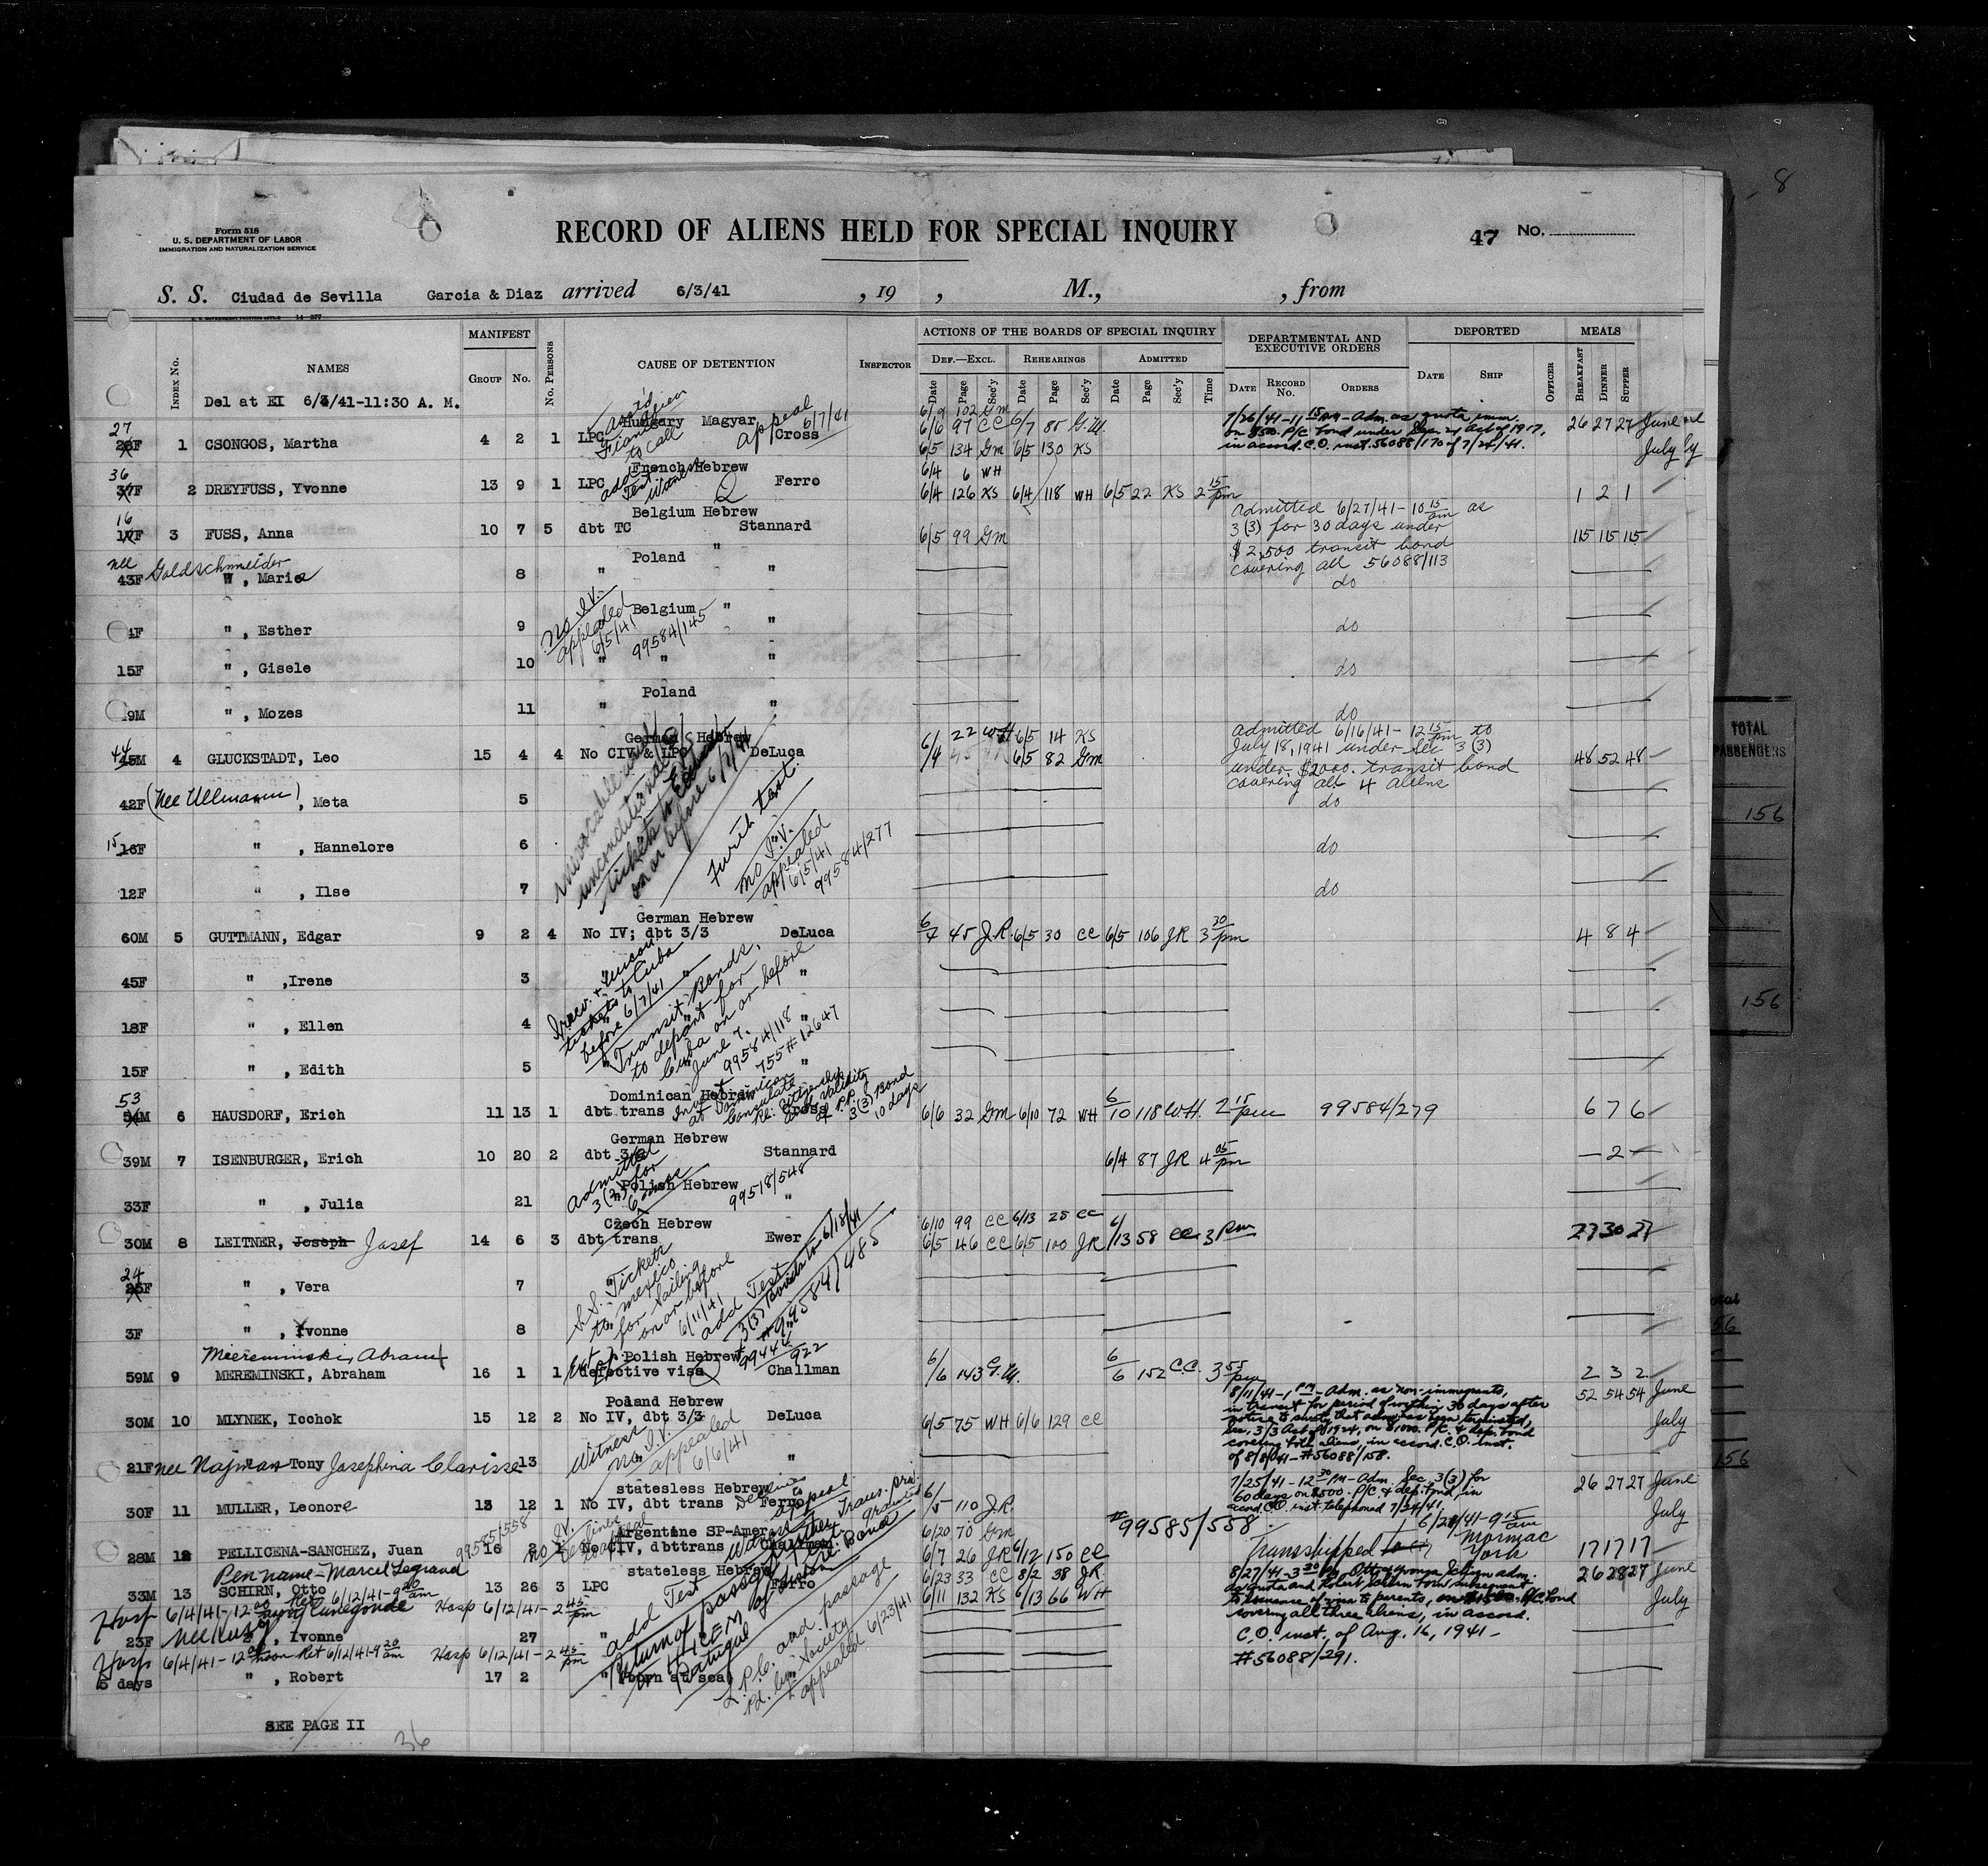 8
Form 518
U. S. DEPARTMENT OF LABOR
IMMIGRATION AND NATURALIZATION SERVICE
RECORD OF ALIENS HELD FOR SPECIAL INQUIRY
47 No.
S. S. Ciudad de Sevilla Garcia & Diaz arrived 6/3/41 , 19 , M., , from
INDEX No. NAMES MANIFEST GROUP No. No. PERSONS CAUSE OF DETENTION INSPECTOR ACTIONS OF THE BOARDS OF SPECIAL INQUIRY DEPARTMENTAL AND EXECUTIVE ORDERS DEPORTED MEALS
DEF.—EXCL. REHEARINGS ADMITTED
Date Page Sec'y Date Page Sec'y Date Page Sec'y Time DATE RECORD No. ORDERS DATE SHIP OFFICER BREAKFAST DINNER SUPPER
Del at EI 6/3/41-11:30 A. M.
6/9 102 Gm
Hungary Magyar appeal 6/7/41 6/6 97 CC 6/7 85 G.M. 7/26/41-11 15 AM-Adm. as quota imm.
27 1 CSONGOS, Martha 4 2 1 LPC Fiance to call Cross on $500. P/c bond under Sec. 21 Act of 1917, 26 27 27 June
6/5 134 Gm 6/5 130 KS in accord. C.O. inst. 56088/170 of 7/24/41. July
French Hebrew 6/4 6 WH
36 37F 2 DREYFUSS, Yvonne 13 9 1 LPC add Test. Ferro 6/4 126 KS 6/4 118 WH 6/5 22 KS 2 15 pm 1 2 1
Belgium Hebrew admitted 6/27/41-10 15 am as
16 17F 3 FUSS, Anna 10 7 5 dbt TC Stannard 6/5 99 Gm 3(3) for 30 days under 115 115 115
nee Goldschmeider Poland " $2,500 transit bond
43F " , Marie 8 " " covering all 56088/113
do
no I.V. appealed 6/5/41 Belgium "
4F " , Esther 9 99584/145 " do
15F " , Gisele 10 " " " do
Poland
9M " , Mozes 11 " " do
German Hebrew 6/4 22 WH 6/5 14 KS admitted 6/16/41-12 15 pm to
44 45M 4 GLUCKSTADT, Leo 15 4 4 No CIV & LPC DeLuca 6/5 82 Gm July 18, 1941 under Sec 3(3) 48 52 48
under $2000. transit bond
covering all 4 aliens
42F (Nee Ullmann) , Meta 5 do
15 16F " , Hannelore 6 do
12F " , Ilse 7 do
unconditional
tickets to
on or before 6/7/41
Furth test.
no I.V.
appealed
6/5/41
99584/277
German Hebrew
60M 5 GUTTMANN, Edgar 9 2 4 No IV; dbt 3/3 DeLuca 6/4 45 J.R. 6/5 30 CC 6/5 106 JR 3 30 pm 4 8 4
45F " ,Irene 3 "
18F " , Ellen 4 "
15F " , Edith 5 "
tickets to Cuba
before 6/7/41
Transit Bonds,
to depart for
Cuba on or before
June 7.
99584/118
755#12647
Dominican Hebrew
53 54M 6 HAUSDORF, Erich 11 13 1 dbt trans Cross 3(3) Bond 10 days 6/6 32 Gm 6/10 72 WH 6/10 118 W.H. 2 15 pm 99584/279 6 7 6
at Dominican
Consulate
re. citizenship
and validity
of P.P.
German Hebrew
39M 7 ISENBURGER, Erich 10 20 2 dbt 3/3 Stannard 6/4 87 JR 4 05 pm — 2 —
admitted 3(2) for 6 mos
Polish Hebrew
33F " , Julia 21 99518/548 "
Czech Hebrew 6/10 99 CC 6/13 25 CC
30M 8 LEITNER, Joseph Josef 14 6 3 dbt trans Ewer 6/5 46 CC 6/5 100 JR 6/13 58 CC 3 pm 27 30 27
24 25F " , Vera 7
3F " , Yvonne 8
S.S. Tickets
to Mexico
for sailing
on or before
6/11/41
add Test
3(3) Bonds to 6/18/41
#99584/485
#99444/922
Meereminski, Abram Polish Hebrew
59M 9 MEREMINSKI, Abraham 16 1 1 defective visa Challman 6/6 143 G.M. 6/6 152 C.C. 3 55 pm 2 3 2
Poland Hebrew 8/11/41-1 PM-Adm. as non-immigrants, 52 54 54 June
30M 10 MLYNEK, Icchok 15 12 2 No IV, dbt 3/3 DeLuca 6/5 75 WH 6/6 129 CC in transit for period of within 30 days after July
notice to surety that adm. has been terminated,
Sec. 3/3 Act of 1924, on $1000. P/C. & dep. bond
covering both aliens, in accord. C.O. inst.
of 8/8/41-#56088/158.
Witness no I.V. appealed 6/6/41
21F nee Najman Tony Josephina Clarisse 13 "
stateless Hebrew 7/25/41-12 30 PM-Adm. Sec. 3(3) for 26 27 27 June
30F 11 MULLER, Leonore 13 12 1 No IV, dbt trans Ferro 6/5 110 J.R. 60 days on $500. P/C. & dep. bond in
accord. C.O. inst. telephoned 7/24/41. July
99585/558 Argentine SP-Amer 6/20 70 Gm #99585/558 6/21/41-9 15 am
28M 12 PELLICENA-SANCHEZ, Juan 16 2 1 No CIV, dbttrans Challman 6/7 26 JR 6/12 150 CC Transshipped Mormac York 17 17 17
Pen name-Marcel Legrand stateless Hebrew 6/23 33 CC 8/2 38 JR. 8/27/41-3 30 PM-Otto & Yvonne Schirn adm. 26 28 27 June
33M 13 SCHIRN, Otto 13 26 3 LPC Ferro 6/11 132 KS 6/13 66 WH as quota and Robert Schirn born subsequent
Ret 6/12/41-9 20 am to issuance of visa to parents, on $1500. P/C. bond July
Hosp 6/4/41-12 00 noon Hosp 6/12/41-2 45 pm covering all three aliens, in accord.
23F , Ivonne 27 " C.O. inst. of Aug. 16, 1941-
Hosp 6/4/41-12 00 noon Ret 6/12/41-9 20 am Hosp 6/12/41-2 45 pm #56088/291.
5 days " , Robert 17 2 " born at sea
add Test
Return of passage
Portugal
L.P.C. and passage
pd. by Society
appealed 6/23/41
SEE PAGE II
36
TOTAL
PASSENGERS
156
156
56
156